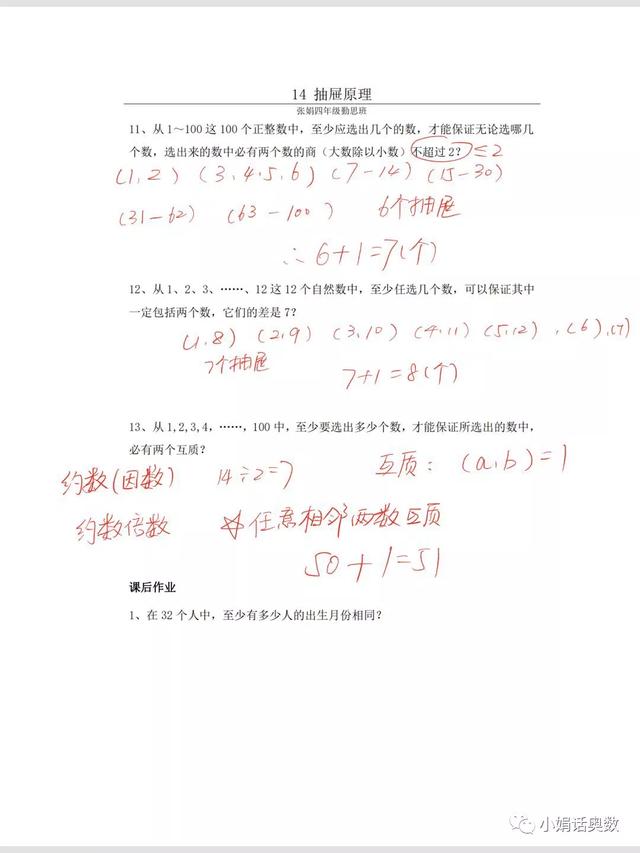 14 抽屉原理
张娟四年级勤思班
11、从 1～100 这 100 个正整数中，至少应选出几个的数，才能保证无论选哪几
个数，选出来的数中必有两个数的商（大数除以小数）不超过 2？ ≤2
(1, 2) (3, 4, 5, 6) (7-14) (15-30)
(31-62) (63-100) 6个抽屉
∴ 6+1=7(个)
12、从 1、2、3、……、12 这 12 个自然数中，至少任选几个数，可以保证其中
一定包括两个数，它们的差是 7？
(1,8) (2,9) (3,10) (4,11) (5,12), (6), (7)
7个抽屉
7+1=8(个)
13、从 1,2,3,4，……，100 中，至少要选出多少个数，才能保证所选出的数中，
必有两个互质？
约数(因数) 14÷2=7 互质： (a,b)=1
约数倍数 ☆任意相邻两数互质
50+1=51
课后作业
1、在 32 个人中，至少有多少人的出生月份相同？
小娟话奥数